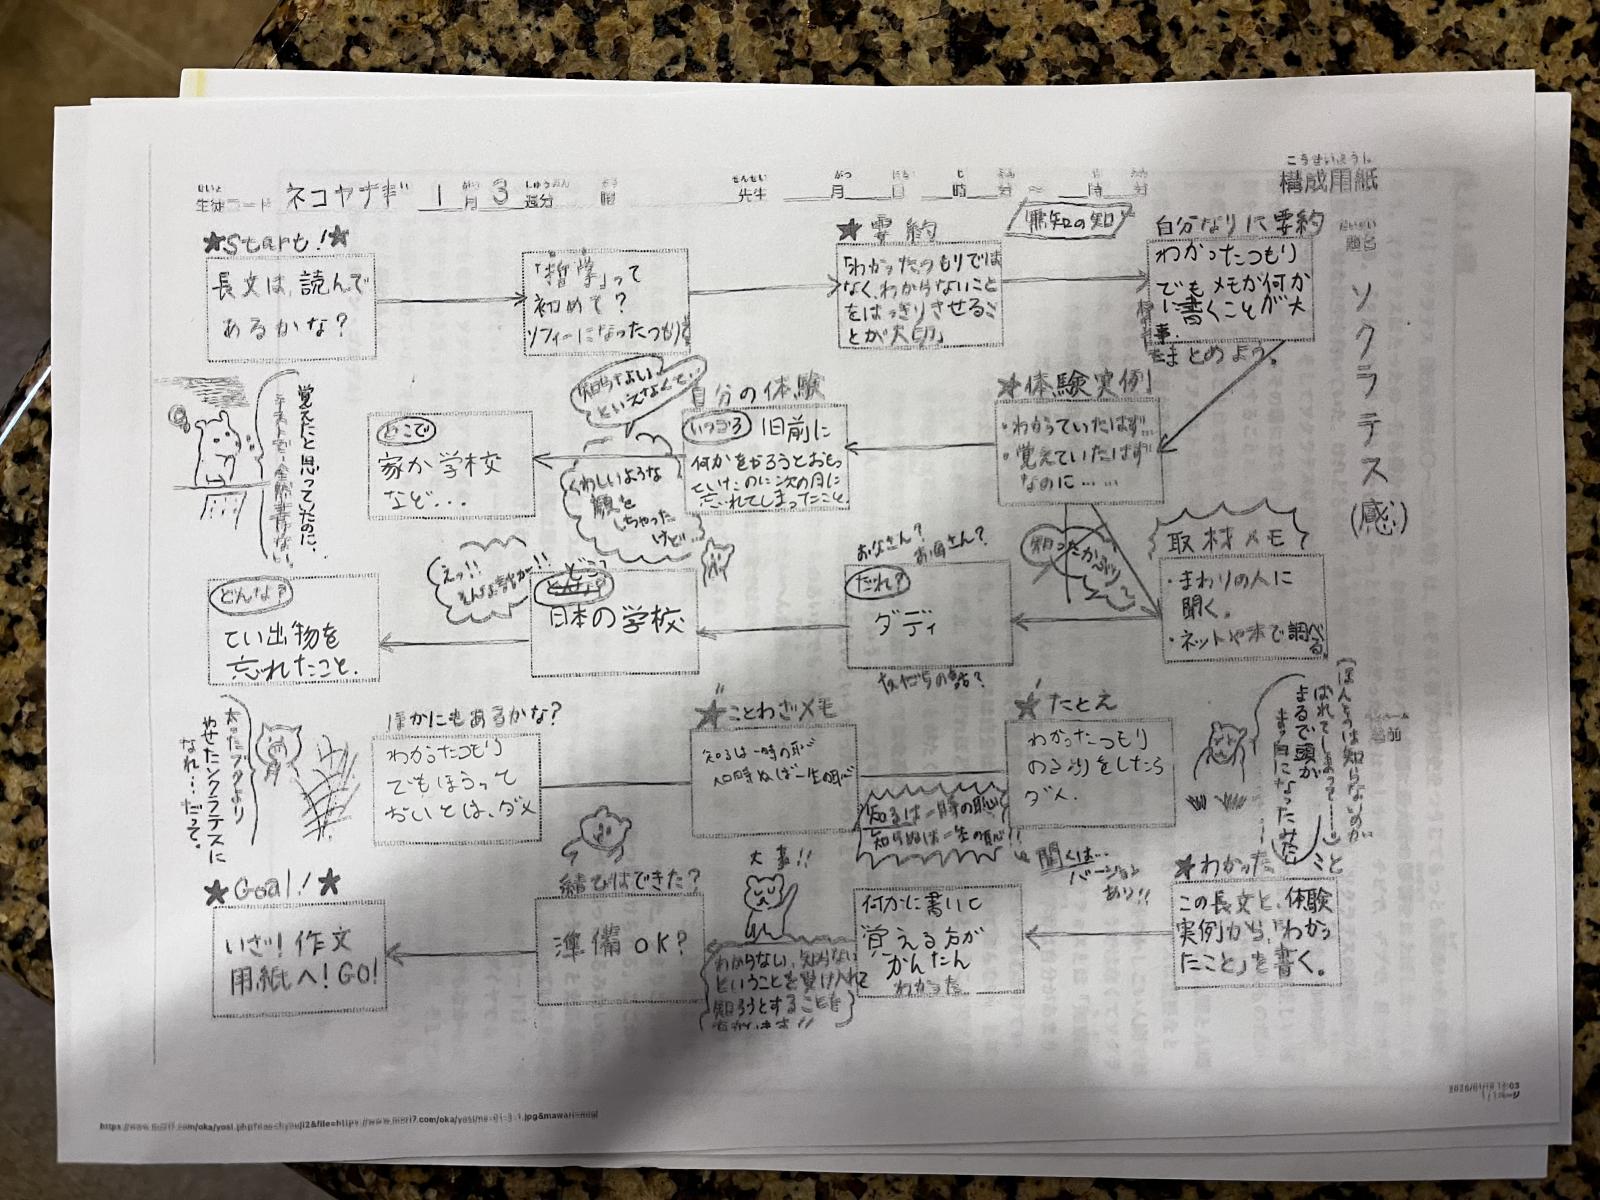 こうせいようし
構成用紙
せいと
生徒コード ネコヤナギ 1月 3週分
せんせい
先生 月 日 時 分 ～ 時 分
だいめい
題名 ソクラテス(感)
★Start!★
長文は、読んで
あるかな?
「哲学」って
初めて?
ソフィーになったつもり
★要約
無知の知
「わかったつもりでは
なく、わからないこと
をはっきりさせるこ
とが大切」
自分なりに要約
わかったつもり
でもメモが何か
に書くことが大
事.
まとめよう。
★体験実例
・わかっていたはず…
・覚えていたはず
なのに……
自分の体験
いつごろ 1日前に
何かをやろうとおもっ
ていたのに次の月に
忘れてしまったこと.
知らなよい
といえなくて..
くわしいような
顔を
しちゃった
けど…
どこで
家か学校
など...
覚えたと思っていたのに、
テストで全然書けない。
取材メモ
・まわりの人に
聞く。
・ネットや本で調べる。
知ったかぶり
お父さん? お母さん?
だれ?
ダディ
友だちの話?
どこ?
日本の学校
えっ!!
そんな話が!!
どんな?
てい出物を
忘れたこと.
(ほんとうは知らないのが
ばれてしまって→)
まるで頭が
まっ白になったみたい
★たとえ
わかったつもり
のまりをしたら
ダメ.
★ことわざメモ
知るは一時の恥
知らぬは一生の恥!!
聞くは…
バージョン
あり!!
ほかにもあるかな?
わかったつもり
でもほうって
おいとは、ダメ
太ったブタより
やせたソクラテスに
なれ…だって。
★わかったこと
この長文と、体験
実例から、「わかっ
たこと」を書く。
何かに書いて
覚える方が
かんたん
わかった
大事!!
わからない、知らない
ということを受け入れて
知ろうとすることも
結びはできた?
準備OK?
★Goal!★
いざ!作文
用紙へ!GO!
1/1ページ